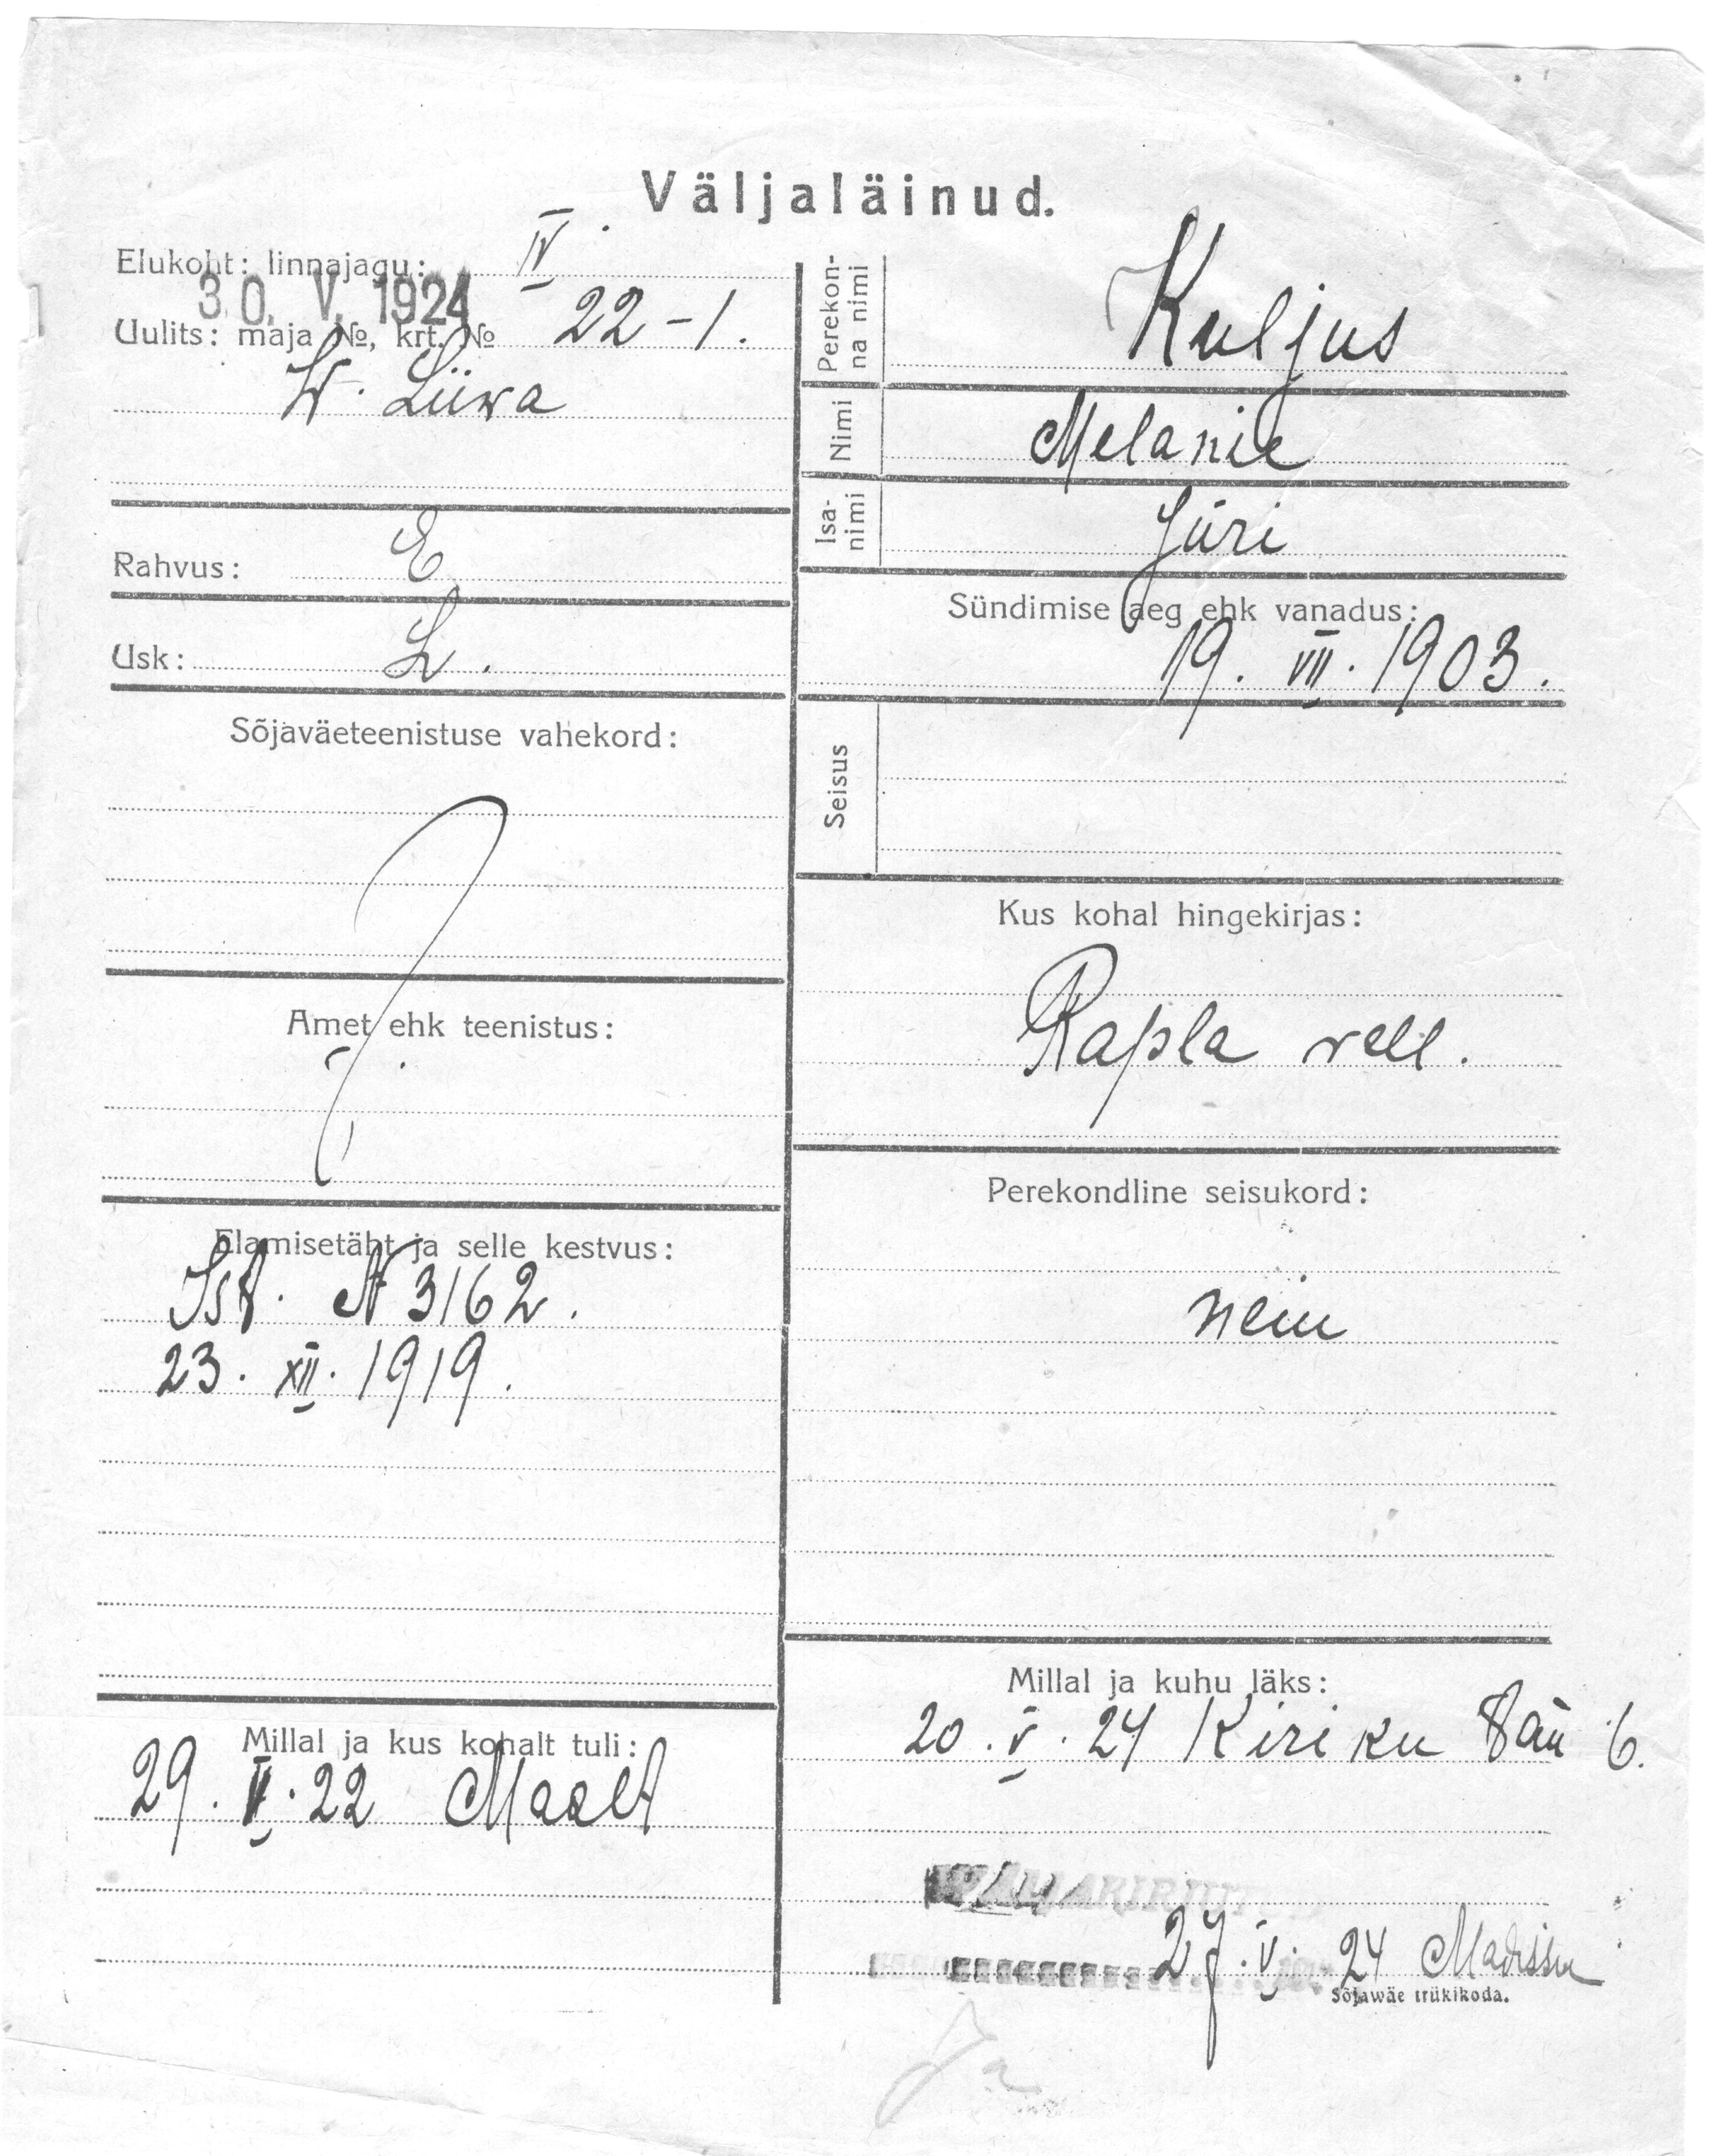 Väljaläinud.
Elukoht: linnajagu: IV.
30. V. 1924
Uulits: maja №, krt. № 22-1.
W. Liiwa
Rahvus: E
Usk: L.
Sõjaväeteenistuse vahekord:
Amet ehk teenistus:
Elamisetäht ja selle kestvus:
Ist. N 3162.
23. XII. 1919.
Millal ja kus kohalt tuli:
29. V. 22 Maalt
Perekon-
na nimi
Kuljus
Nimi
Melanie
Isa-
nimi
Jüri
Sündimise aeg ehk vanadus:
19. VII. 1903.
Seisus
Kus kohal hingekirjas:
Rapla vall.
Perekondline seisukord:
neiu
Millal ja kuhu läks:
20. V. 24 Kiriku tän 6.
27. V. 24 Madissu
Sõjawäe trükikoda.
Ja